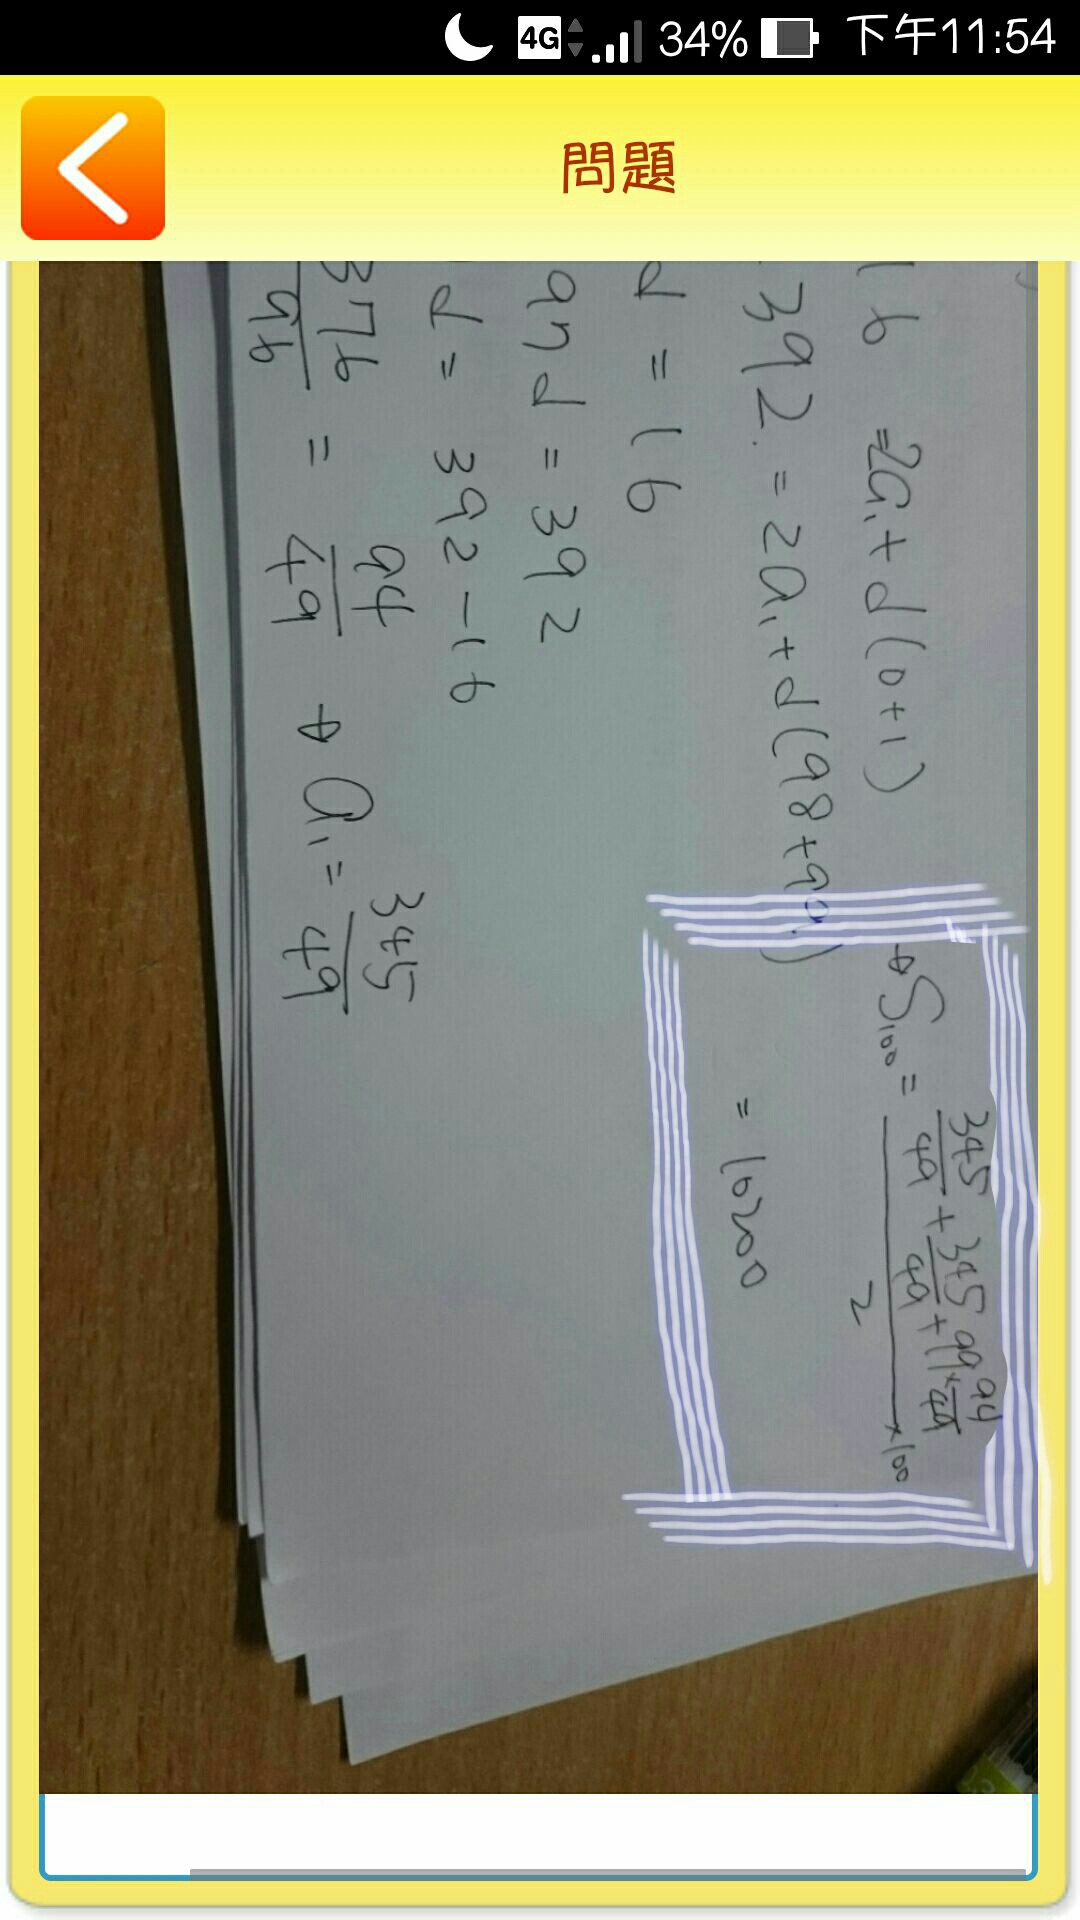 4G 34% 下午11:54
問題
16 = 2a₁ + d(0+1)
392 = 2a₁ + d(98+99)
d = 16
97d = 392
d = 392 - 16
376/96 = 94/49 → a₁ = 345/49
→ S₁₀₀ = (345/49 + 345/49 + 99 × 94/49)/2 × 100
= 10200